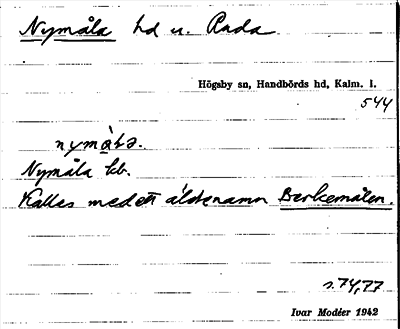 Nymåla hd u. Ruda
Högsby sn, Handbörds hd, Kalm. l.
544
Nymåla kb.
Kallas med ett äldre namn Berkemålen.
s. 74, 77
Ivar Modéer 1942